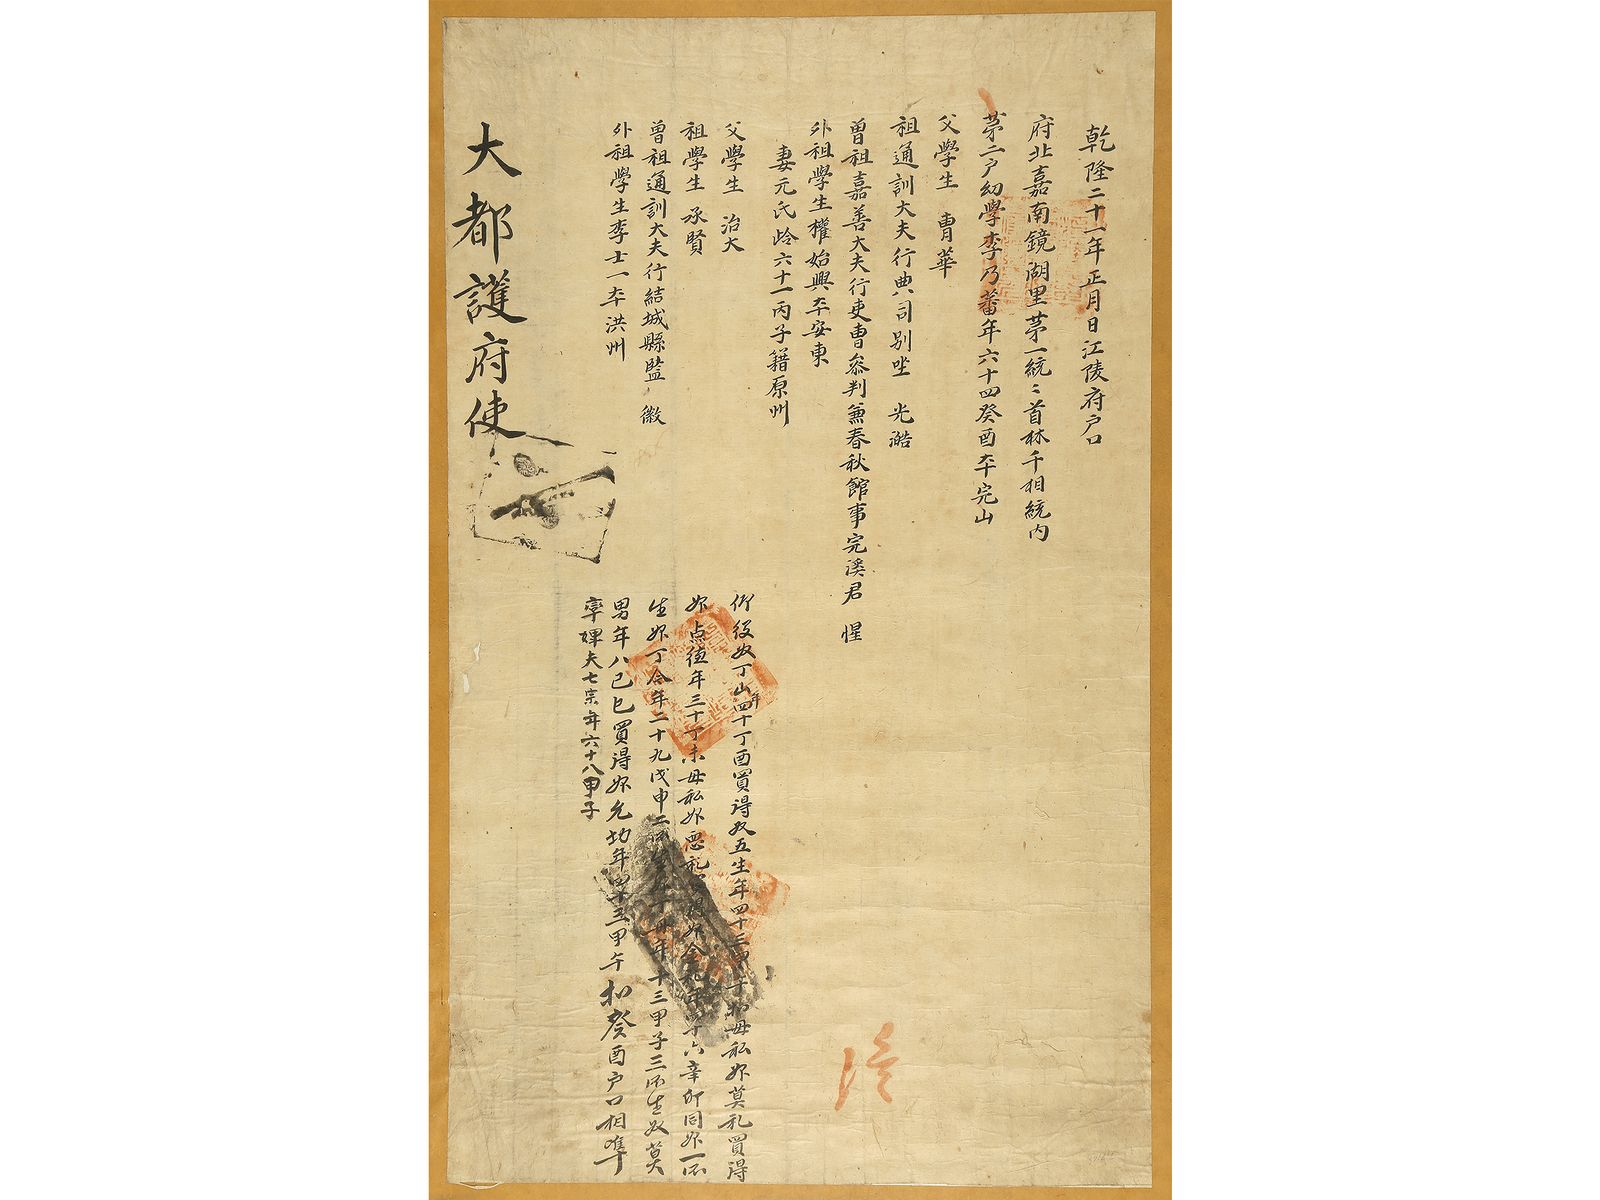 乾隆二十一年正月日江陵府戶口
府北嘉南鏡湖里苐一統二首林千相統內
苐二戶幼學李乃蕃年六十四癸酉夲完山
父學生 胄華
祖通訓大夫行典司別坐 光澔
曽祖嘉善大夫行吏曺叅判兼春秋館事完溪君 惺
外祖學生權始興夲安東
妻元氏齡六十一丙子籍原州
父學生 治大
祖學生 承賢
曽祖通訓大夫行結城縣監 徽
外祖學生李士一夲洪州
仰役奴丁山年四十丁酉買得奴五生年四十三甲午 母私婢莫礼買得
婢点德年三十丁未母私婢 礼 得婢 年四十六辛卯同婢一所
生婢丁合年二十九戊申二所 年十三甲子三所生奴莫
男年八己巳買得婢允㓛年四十三甲午 癸酉戶口相凖
率婢夫七宗年六十八甲子
大都護府使